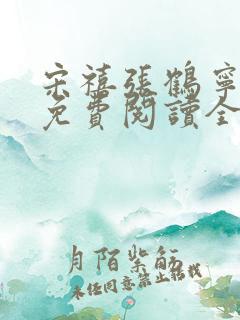 宋禧張鶴寧
免費閱讀全
月陌紫筋
未经同意禁止转载